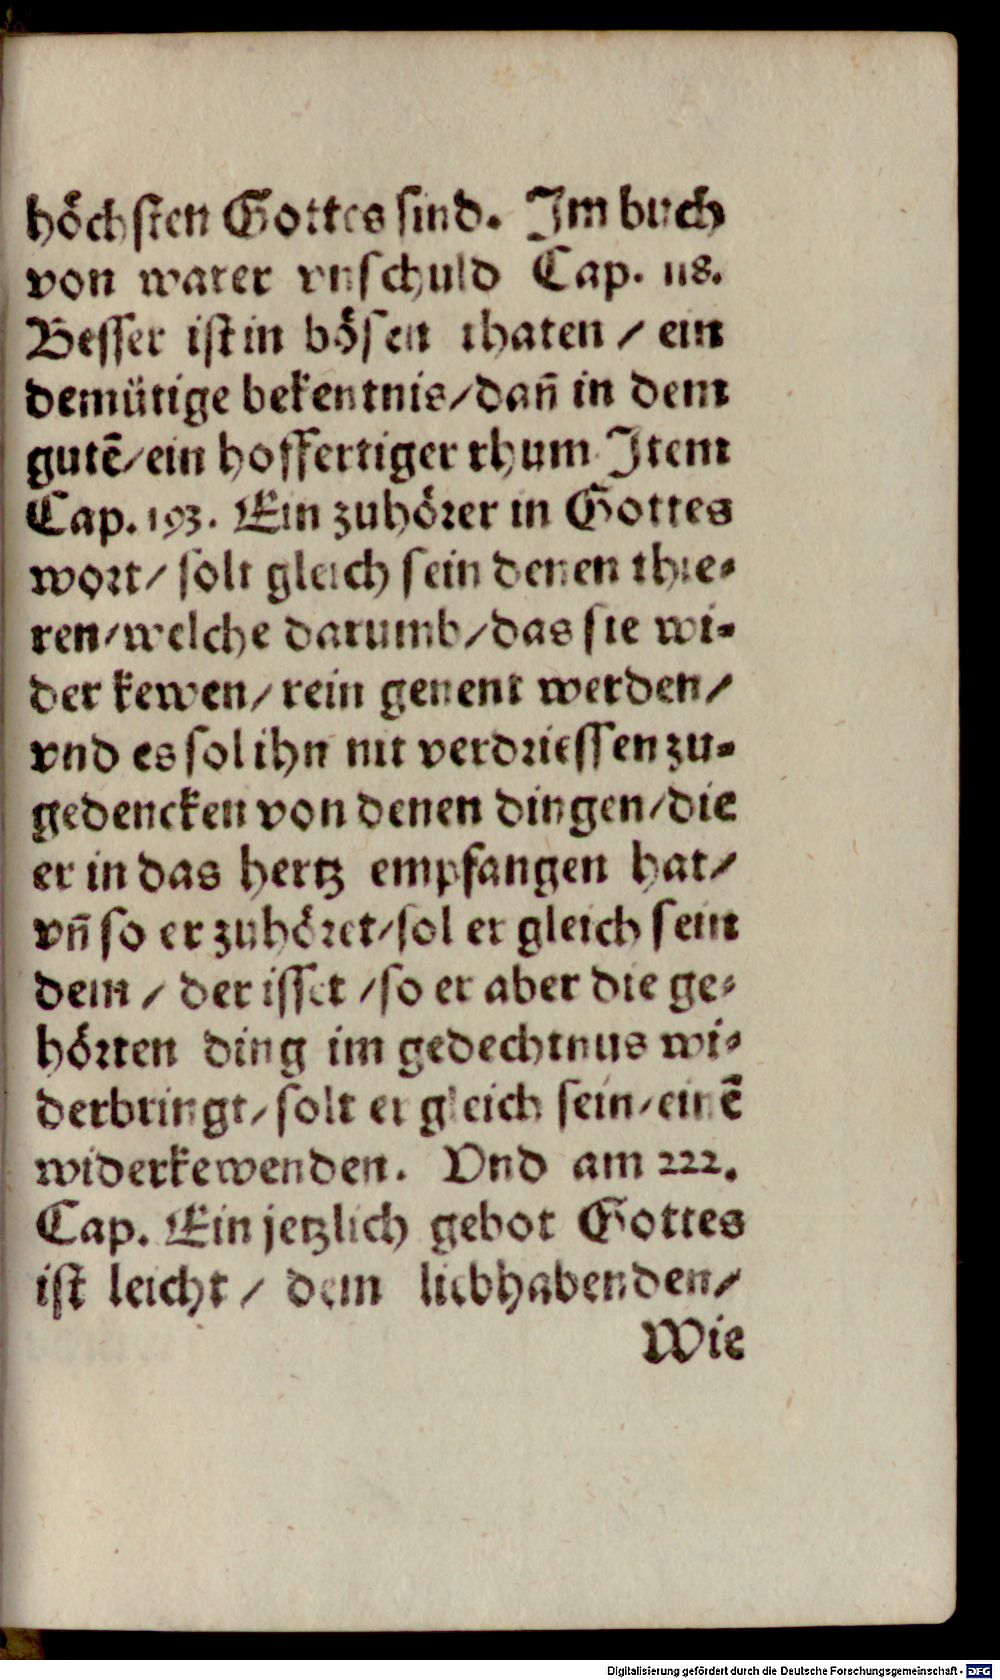 höchsten Gottes sind. Im buch
von warer vnschuld Cap. 118.
Besser ist in bösen thaten / ein
demütige bekentnis / dañ in dem
gutẽ / ein hoffertiger rhum Item
Cap. 193. Ein zuhörer in Gottes
wort / solt gleich sein denen thie-
ren / welche darumb / das sie wi-
der kewen / rein genent werden /
vnd es sol ihn nit verdriessen zu-
gedencken von denen dingen / die
er in das hertz empfangen hat /
vñ so er zuhöret / sol er gleich sein
dem / der isset / so er aber die ge-
hörten ding im gedechtnus wi-
derbringt / solt er gleich sein / einẽ
widerkewenden. Vnd am 222.
Cap. Ein jetzlich gebot Gottes
ist leicht / dem liebhabenden /
Wie
Digitalisierung gefördert durch die Deutsche Forschungsgemeinschaft - DFG